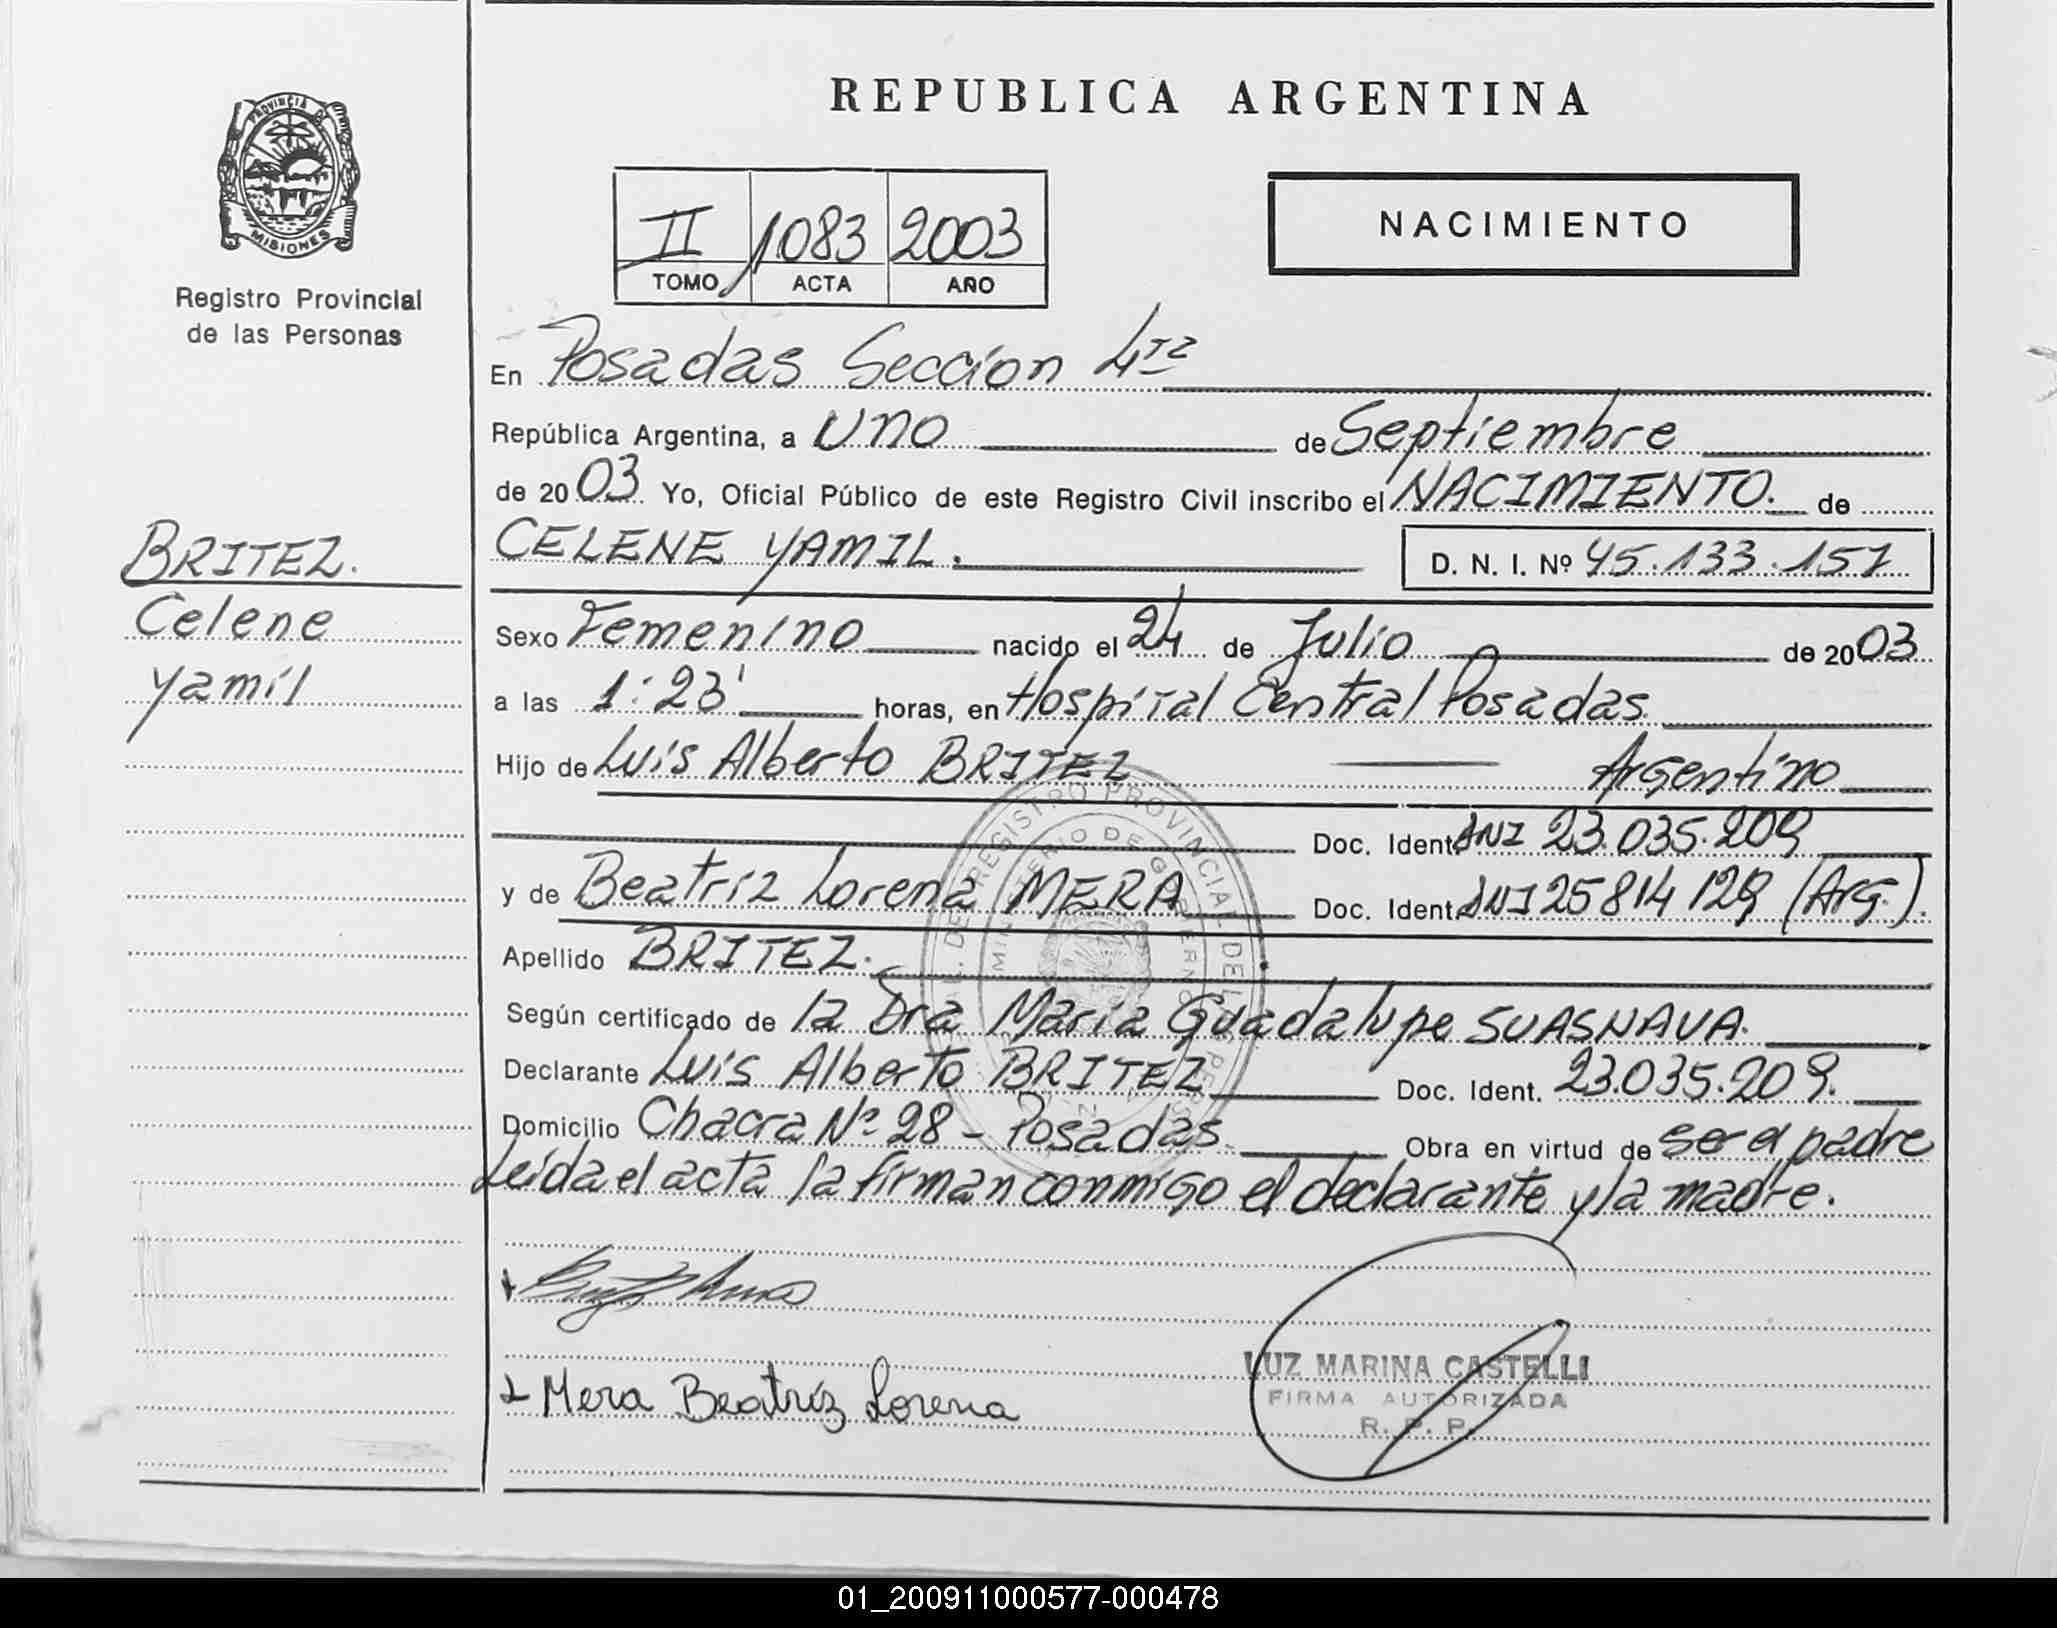 REPUBLICA ARGENTINA
PROVINCIA DE MISIONES
Registro Provincial
de las Personas
II 1083 2003
TOMO ACTA AÑO
NACIMIENTO
En Posadas Sección 4ta
República Argentina, a uno de Septiembre
de 2003 Yo, Oficial Público de este Registro Civil inscribo el NACIMIENTO. de
CELENE YAMIL. D. N. I. Nº 45.133.157
BRITEZ.
Celene
Yamil
Sexo Femenino nacido el 24 de Julio de 2003
a las 1:23' horas, en Hospital Central Posadas
Hijo de Luis Alberto BRITEZ Argentino
Doc. Ident. DNI 23.035.209
y de Beatriz Lorena MERA Doc. Ident. DNI 25814129 (Arg.).
Apellido BRITEZ.
Según certificado de la Dra María Guadalupe SUASNAVA.
Declarante Luis Alberto BRITEZ Doc. Ident. 23.035.209.
Domicilio Chacra Nº 28 - Posadas Obra en virtud de ser el padre
Leida el acta la firman conmigo el declarante y la madre.
Mera Beatriz Lorena
LUZ MARINA CASTELLI
FIRMA AUTORIZADA
R. P. P.
01_200911000577-000478